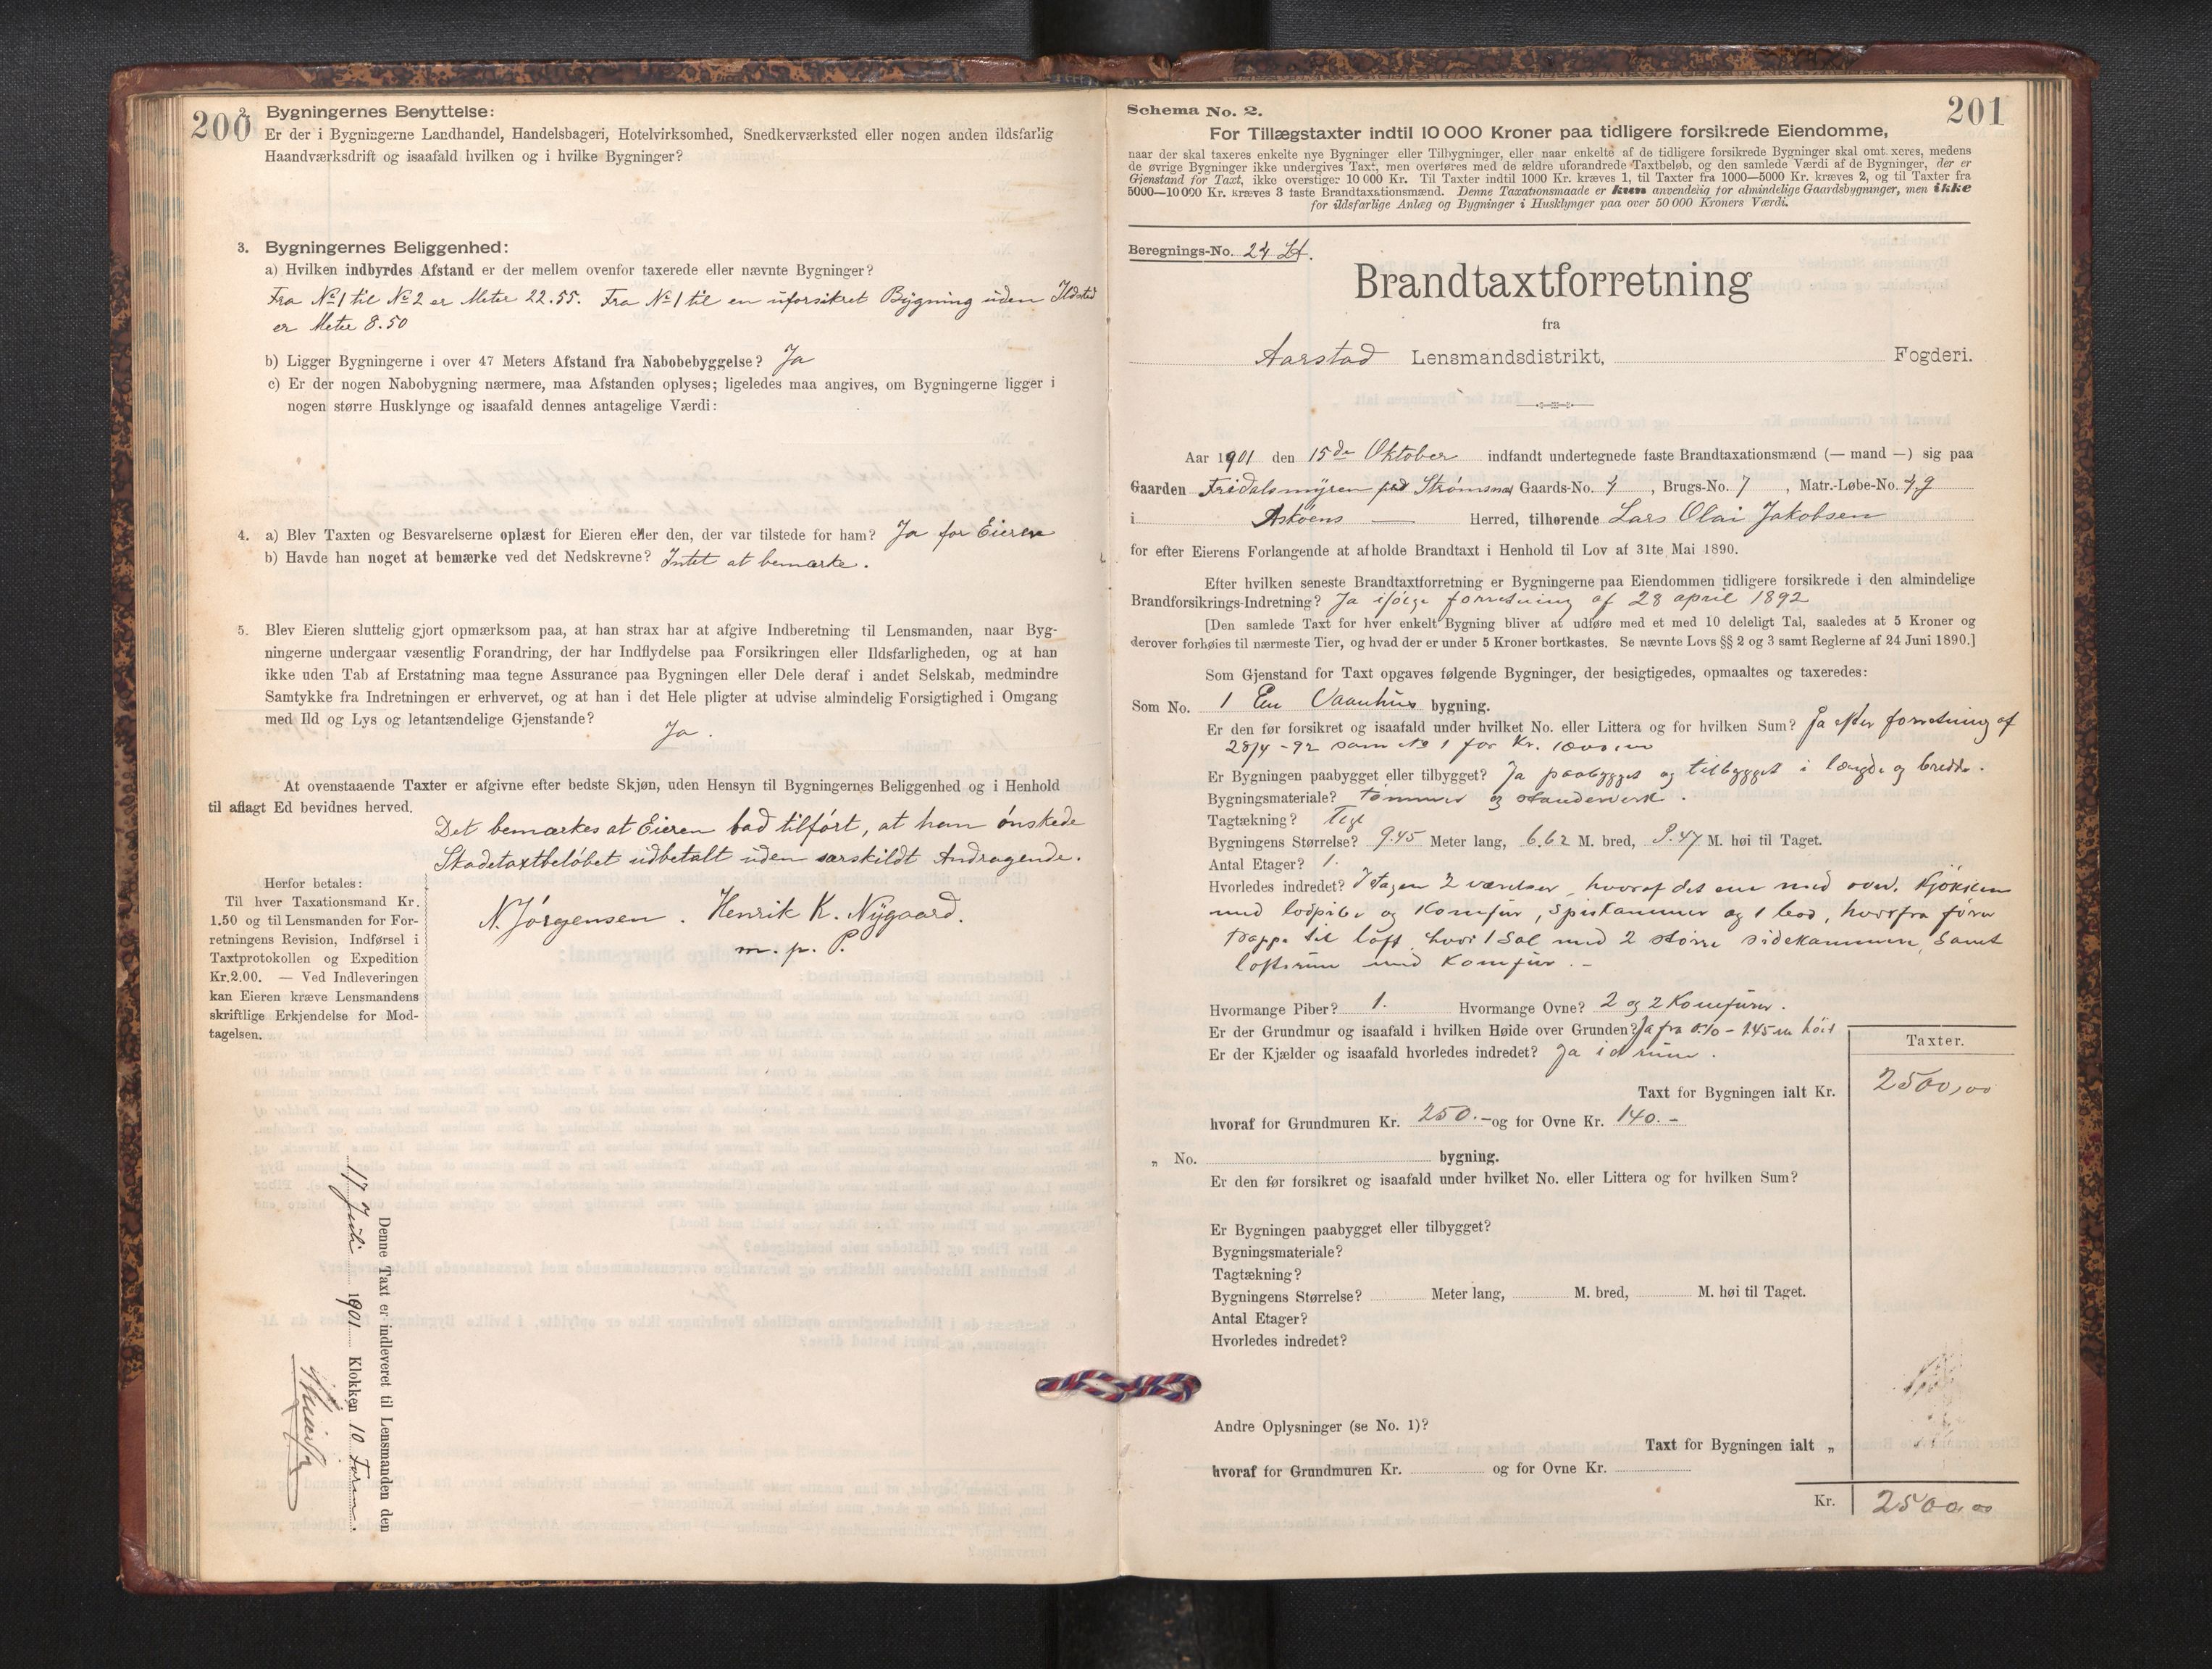 200
2. Bygningernes Benyttelse:
Er der i Bygningerne Landhandel, Handelsbageri, Hotelvirksomhed, Snedkerværksted eller nogen anden ildsfarlig
Haandværksdrift og isaafald hvilken og i hvilke Bygninger?
3. Bygningernes Beliggenhed:
a) Hvilken indbyrdes Afstand er der mellem ovenfor taxerede eller nævnte Bygninger?
Fra No 1 til No 2 er Meter 22.55. Fra No 1 til en uforsikret Bygning uden Ildsted
er Meter 8.50
b) Ligger Bygningerne i over 47 Meters Afstand fra Nabobebyggelse? Ja
c) Er der nogen Nabobygning nærmere, maa Afstanden oplyses; ligeledes maa angives, om Bygningerne ligger i
nogen større Husklynge og isaafald dennes antagelige Værdi:
4. a) Blev Taxten og Besvarelserne oplæst for Eieren eller den, der var tilstede for ham? Ja for Eieren
b) Havde han noget at bemærke ved det Nedskrevne? Intet at bemærke.
5. Blev Eieren sluttelig gjort opmærksom paa, at han strax har at afgive Indberetning til Lensmanden, naar Byg-
ningerne undergaar væsentlig Forandring, der har Indflydelse paa Forsikringen eller Ildsfarligheden, og at han
ikke uden Tab af Erstatning maa tegne Assurance paa Bygningen eller Dele deraf i andet Selskab, medmindre
Samtykke fra Indretningen er erhvervet, og at han i det Hele pligter at udvise almindelig Forsigtighed i Omgang
med Ild og Lys og letantændelige Gjenstande?
Ja.
At ovenstaaende Taxter er afgivne efter bedste Skjøn, uden Hensyn til Bygningernes Beliggenhed og i Henhold
til aflagt Ed bevidnes herved.
Det bemærkes at Eieren bad tilført, at han ønskede
Skadetaxtbeløbet udbetalt uden særskildt Andragende.
N. Jørgensen. Henrik K. Nygaard.
m. p. P.
Herfor betales:
Til hver Taxationsmand Kr.
1.50 og til Lensmanden for For-
retningens Revision, Indførsel i
Taxtprotokollen og Expedition
Kr. 2.00. — Ved Indleveringen
kan Eieren kræve Lensmandens
skriftlige Erkjendelse for Mod-
tagelsen.
Denne Taxt er indleveret til Lensmanden den
17 Juli 1901 Klokken 10 Form.
201
Schema No. 2.
For Tillægstaxter indtil 10 000 Kroner paa tidligere forsikrede Eiendomme,
naar der skal taxeres enkelte nye Bygninger eller Tilbygninger, eller naar enkelte af de tidligere forsikrede Bygninger skal omtaxeres, medens
de øvrige Bygninger ikke undergives Taxt, men overføres med de ældre uforandrede Taxtbeløb, og den samlede Værdi af de Bygninger, der er
Gjenstand for Taxt, ikke overstiger 10 000 Kr. Til Taxter indtil 1000 Kr. kræves 1, til Taxter fra 1000—5000 Kr. kræves 2, og til Taxter fra
5000—10 000 Kr. kræves 3 faste Brandtaxationsmænd. Denne Taxationsmaade er kun anvendelig for almindelige Gaardsbygninger, men ikke
for ildsfarlige Anlæg og Bygninger i Husklynger paa over 50 000 Kroners Værdi.
Beregnings-No. 24
Brandtaxtforretning
fra
Aarstad Lensmandsdistrikt, Fogderi.
Aar 1901 den 15de Oktober indfandt undertegnede faste Brandtaxationsmænd (— mand —) sig paa
Gaarden Fridalsmyren Strømsnes Gaards-No. 4, Brugs-No. 7, Matr.-Løbe-No. 49
i Askøens — Herred, tilhørende Lars Olai Jakobsen
for efter Eierens Forlangende at afholde Brandtaxt i Henhold til Lov af 31te Mai 1890.
Efter hvilken seneste Brandtaxtforretning er Bygningerne paa Eiendommen tidligere forsikrede i den almindelige
Brandforsikrings-Indretning? Ja ifølge forretning af 28 april 1892
[Den samlede Taxt for hver enkelt Bygning bliver at udføre med et med 10 deleligt Tal, saaledes at 5 Kroner og
derover forhøies til nærmeste Tier, og hvad der er under 5 Kroner bortkastes. Se nævnte Lovs §§ 2 og 3 samt Reglerne af 24 Juni 1890.]
Som Gjenstand for Taxt opgaves følgende Bygninger, der besigtigedes, opmaaltes og taxeredes:
Som No. 1 En Vaanhus bygning.
Er den før forsikret og isaafald under hvilket No. eller Littera og for hvilken Sum? Ja efter forretning af
28/4 - 92 som No 1 for Kr. 1000,00
Er Bygningen paabygget eller tilbygget? Ja paabygget og tilbygget i længde og bredde.
Bygningsmateriale? tømmer og standerverk.
Tagtækning? Tegl
Bygningens Størrelse? 9.45 Meter lang, 6.62 M. bred, 3.47 M. høi til Taget.
Antal Etager? 1.
Hvorledes indredet? I etagen 2 værelser, hvoraf det ene med ovn. Kjøkken
med lodpibe og Komfur, Spiskammer og 1 bod, hvorfra fører
trappe til loft, hvor 1 Sal med 2 større sidekammere, samt
loftsrum med Komfur. -
Hvormange Piber? 1. Hvormange Ovne? 2 og 2 Komfurer.
Er der Grundmur og isaafald i hvilken Høide over Grunden? Ja fra 0.70 - 1.45 m høit
Er der Kjælder og isaafald hvorledes indredet? Ja i et rum.
Taxter.
Taxt for Bygningen ialt Kr. 2500,00
hvoraf for Grundmuren Kr. 250.- og for Ovne Kr. 140.-
„ No. bygning.
Er den før forsikret og isaafald under hvilket No. eller Littera og for hvilken Sum?
Er Bygningen paabygget eller tilbygget?
Bygningsmateriale?
Tagtækning?
Bygningens Størrelse? Meter lang, M. bred, M. høi til Taget.
Antal Etager?
Hvorledes indredet?
Andre Oplysninger (se No. 1)?
Taxt for Bygningen ialt „
hvoraf for Grundmuren Kr. og for Ovne Kr.
Kr. 2500,00